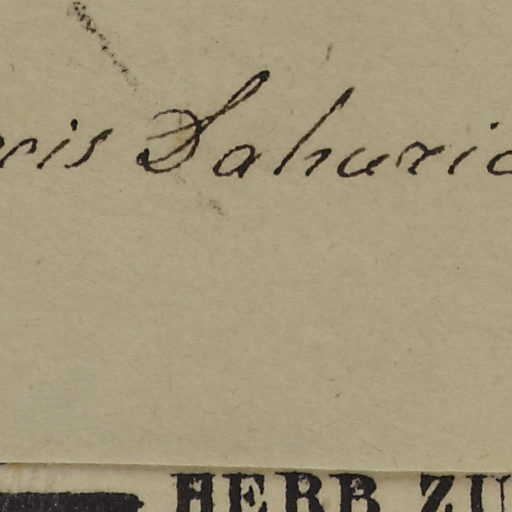 ris Dahuric
HERB. ZU